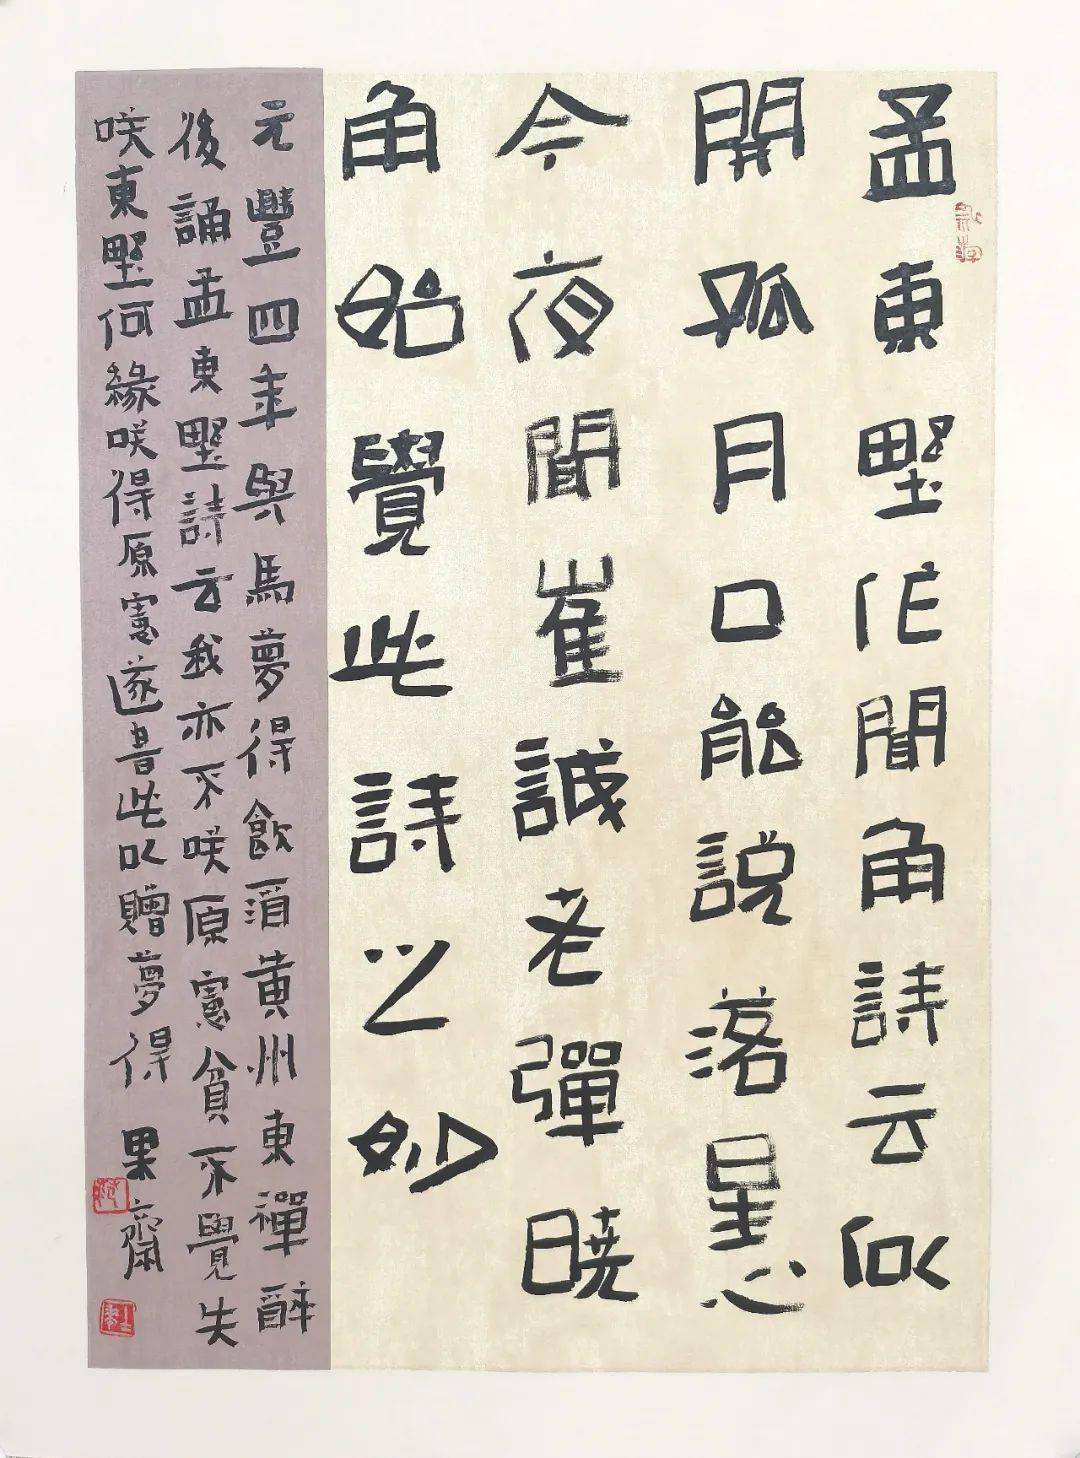 孟東埜作聞角詩云似
開孤月口能說落星心
今夜聞崔誠老彈曉
角始覺此詩之妙
元豐四年與馬夢得飲酒黃州東禪醉
後誦孟東埜詩云我亦不咲原憲貧不覺失
咲東埜何緣咲得原憲遂書此以贈夢得 果齋